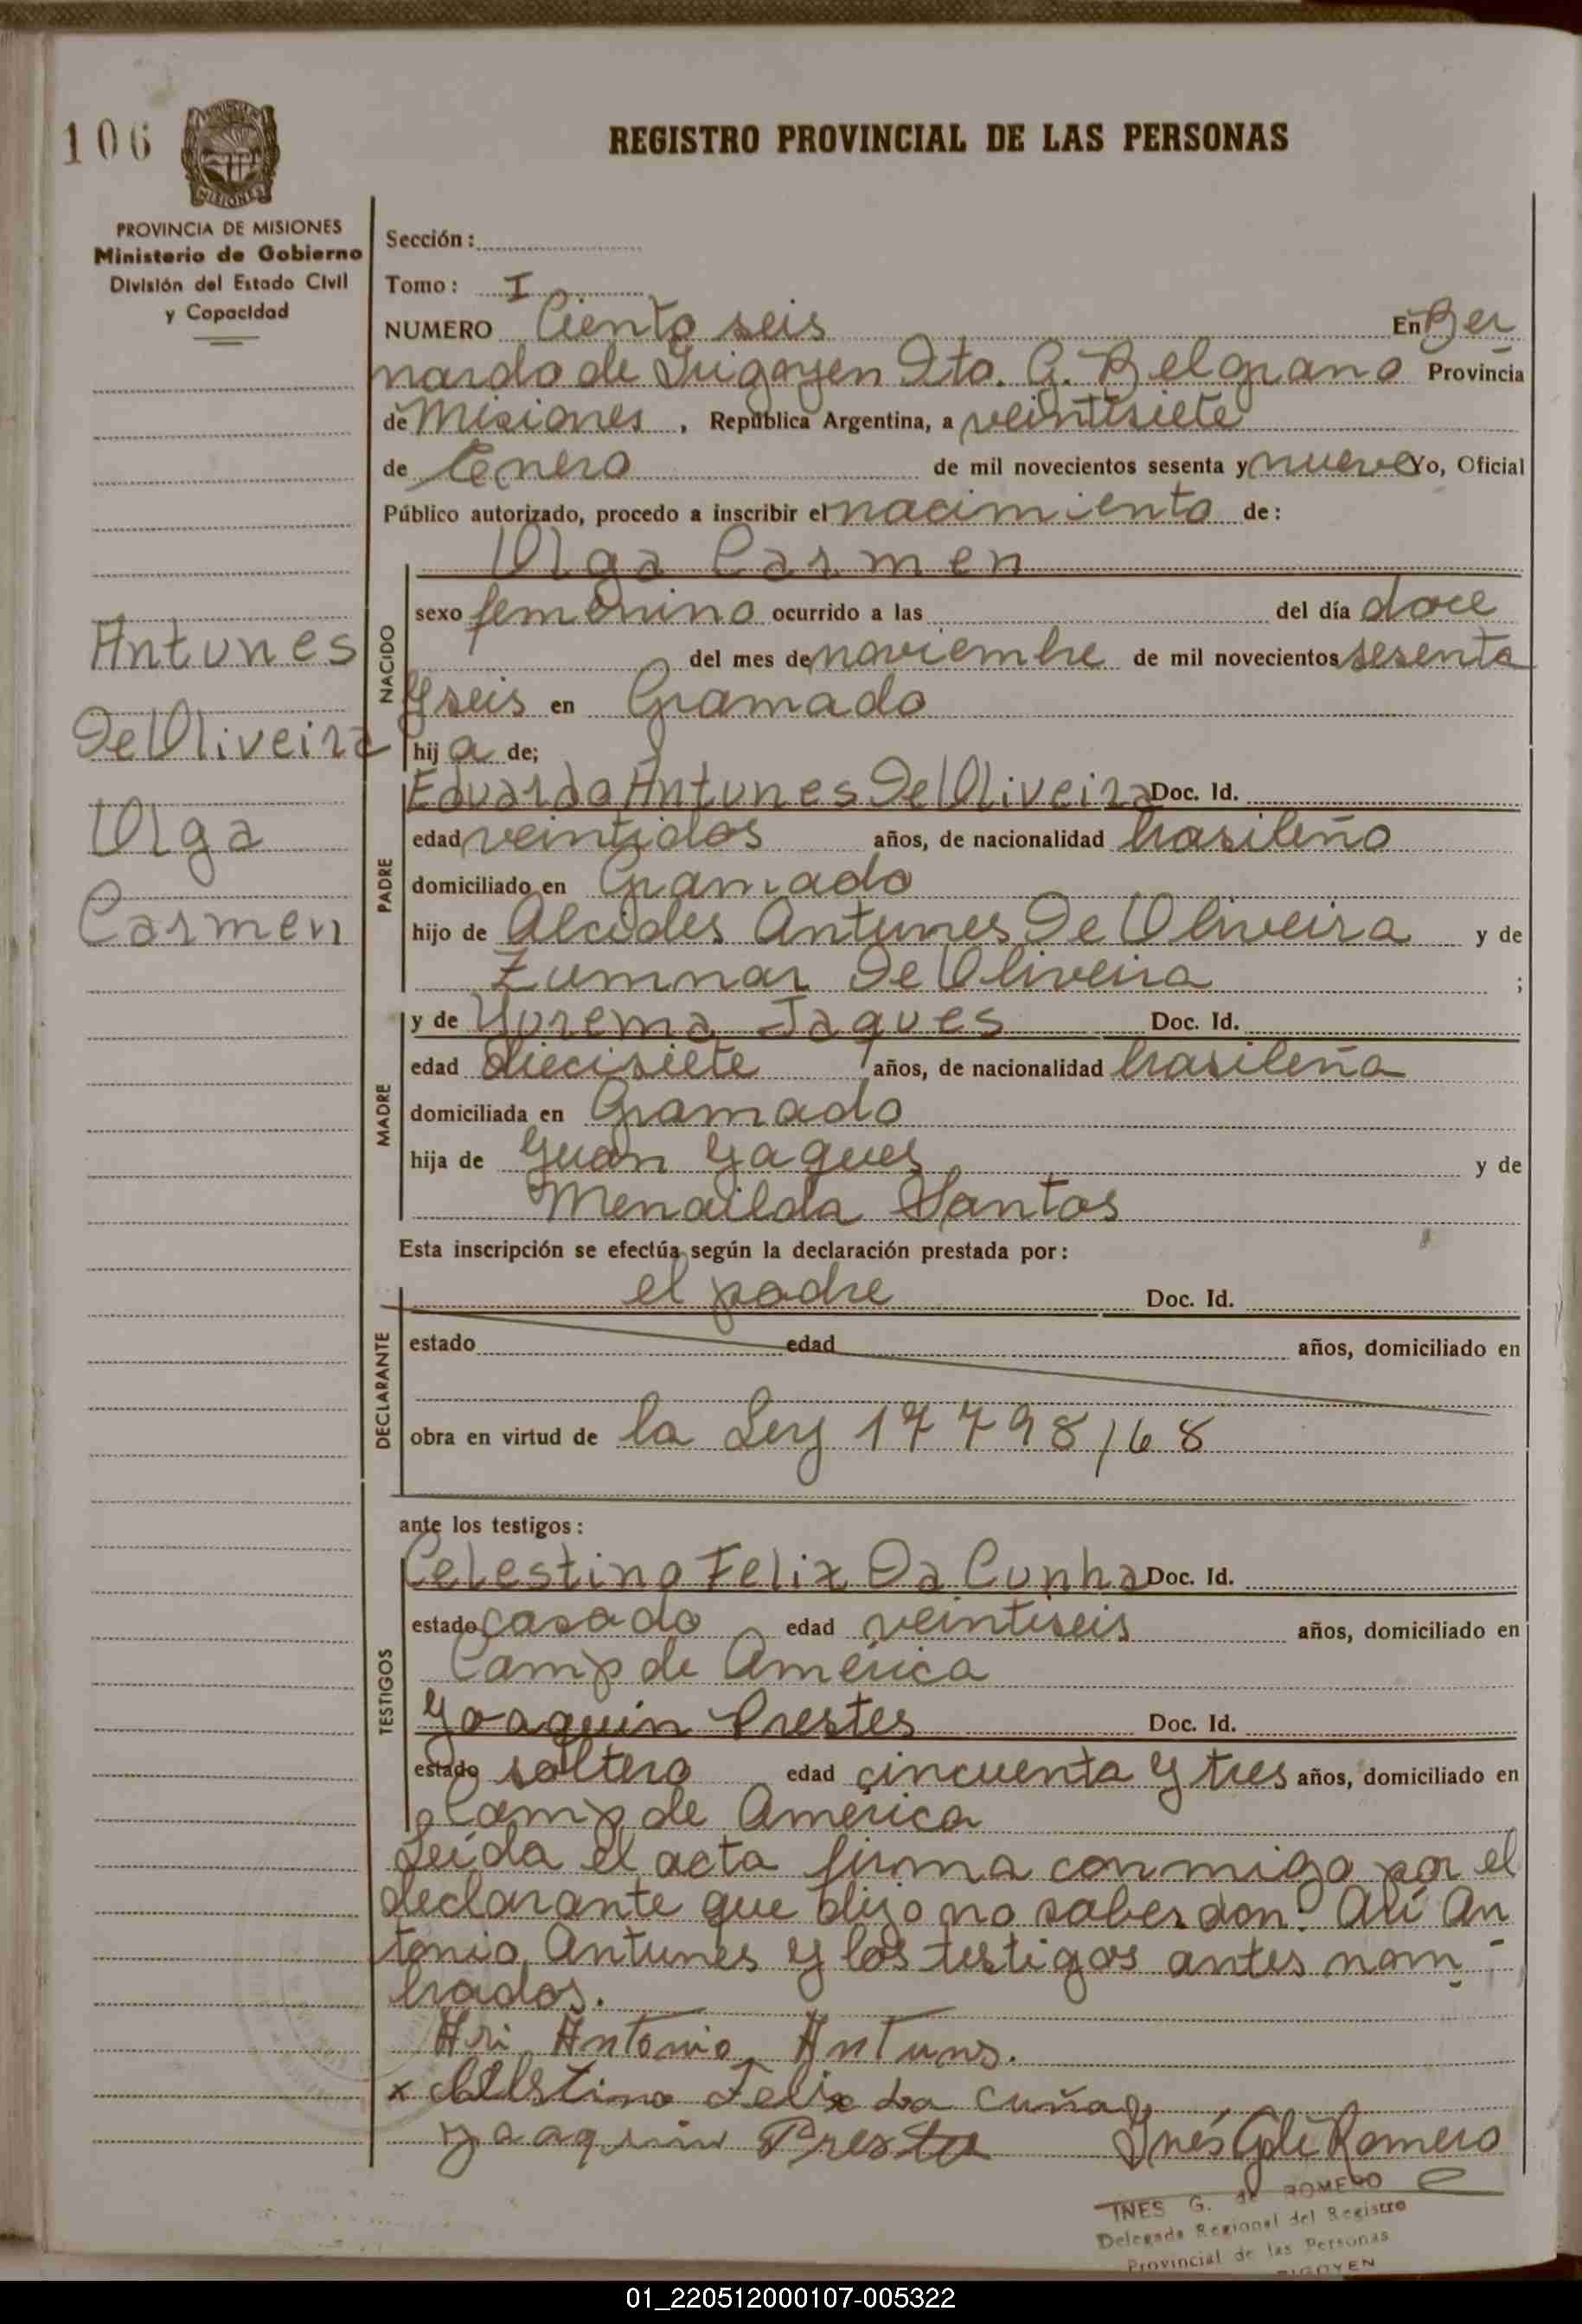 106
PROVINCIA DE MISIONES
Ministerio de Gobierno
División del Estado Civil
y Capacidad
REGISTRO PROVINCIAL DE LAS PERSONAS
Sección:
Tomo: I
NUMERO Ciento seis En Ber
nardo de Irigoyen Dto. G. Belgrano Provincia
de Misiones, República Argentina, a veintisiete
de Enero de mil novecientos sesenta y nueve Yo, Oficial
Público autorizado, procedo a inscribir el nacimiento de:
Olga Carmen
NACIDO
sexo femenino ocurrido a las del día doce
del mes de noviembre de mil novecientos sesenta
y seis en Gramado
hija de;
Antunes
De Oliveira
Olga
Carmen
PADRE
Eduardo Antunes De Oliveira Doc. Id.
edad veintidos años, de nacionalidad brasileño
domiciliado en Gramado
hijo de Alcides Antunes De Oliveira y de
Zumnar De Oliveira ;
MADRE
y de Yurema Jaques Doc. Id.
edad diecisiete años, de nacionalidad brasileña
domiciliada en Gramado
hija de Juan Jaques y de
Menailda Santos
Esta inscripción se efectúa según la declaración prestada por:
DECLARANTE
el padre Doc. Id.
estado edad años, domiciliado en
obra en virtud de la Ley 17798/68
ante los testigos:
TESTIGOS
Celestino Felix Da Cunha Doc. Id.
estado casado edad veintiseis años, domiciliado en
Camp de América
Joaquin Prestes Doc. Id.
estado soltero edad cincuenta y tres años, domiciliado en
Camp de América
Leída el acta firma conmigo por el
declarante que dijo no saber don: Ari An
tonio Antunes y los testigos antes nom-
brados.
Ari Antonio Antuns.
x Celestino Felix da cuña
Joaquin Preste Inés G de Romero
INES G. de ROMERO
Delegada Regional del Registro
Provincial de las Personas
IGOYEN
01_220512000107-005322